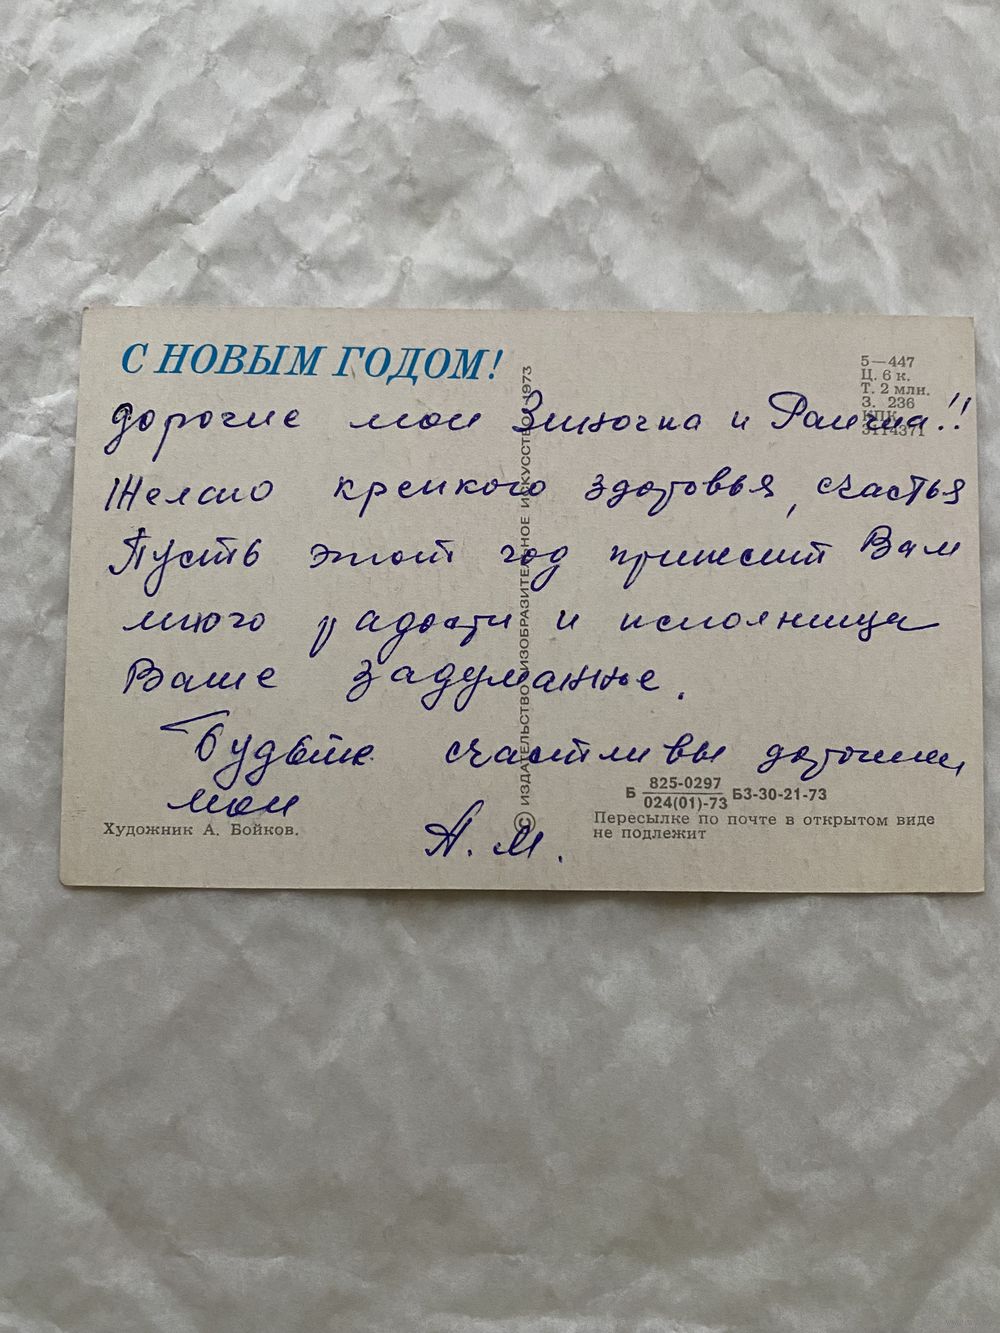 С НОВЫМ ГОДОМ!
5—447
Ц. 6 к.
Т. 2 млн.
З. 236
КПК
3114371
дорогие мои Зиночка и !!
Желаю крепкого здоровья, счастья
Пусть этот год принесит Вам
много радости и исполница
Ваше задуманные.
Будьте счастливы дорогими
мои
А. М.
© ИЗДАТЕЛЬСТВО «ИЗОБРАЗИТЕЛЬНОЕ ИСКУССТВО» 1973
Б 825-0297 / 024(01)-73 БЗ-30-21-73
Художник А. Бойков.
Пересылке по почте в открытом виде
не подлежит